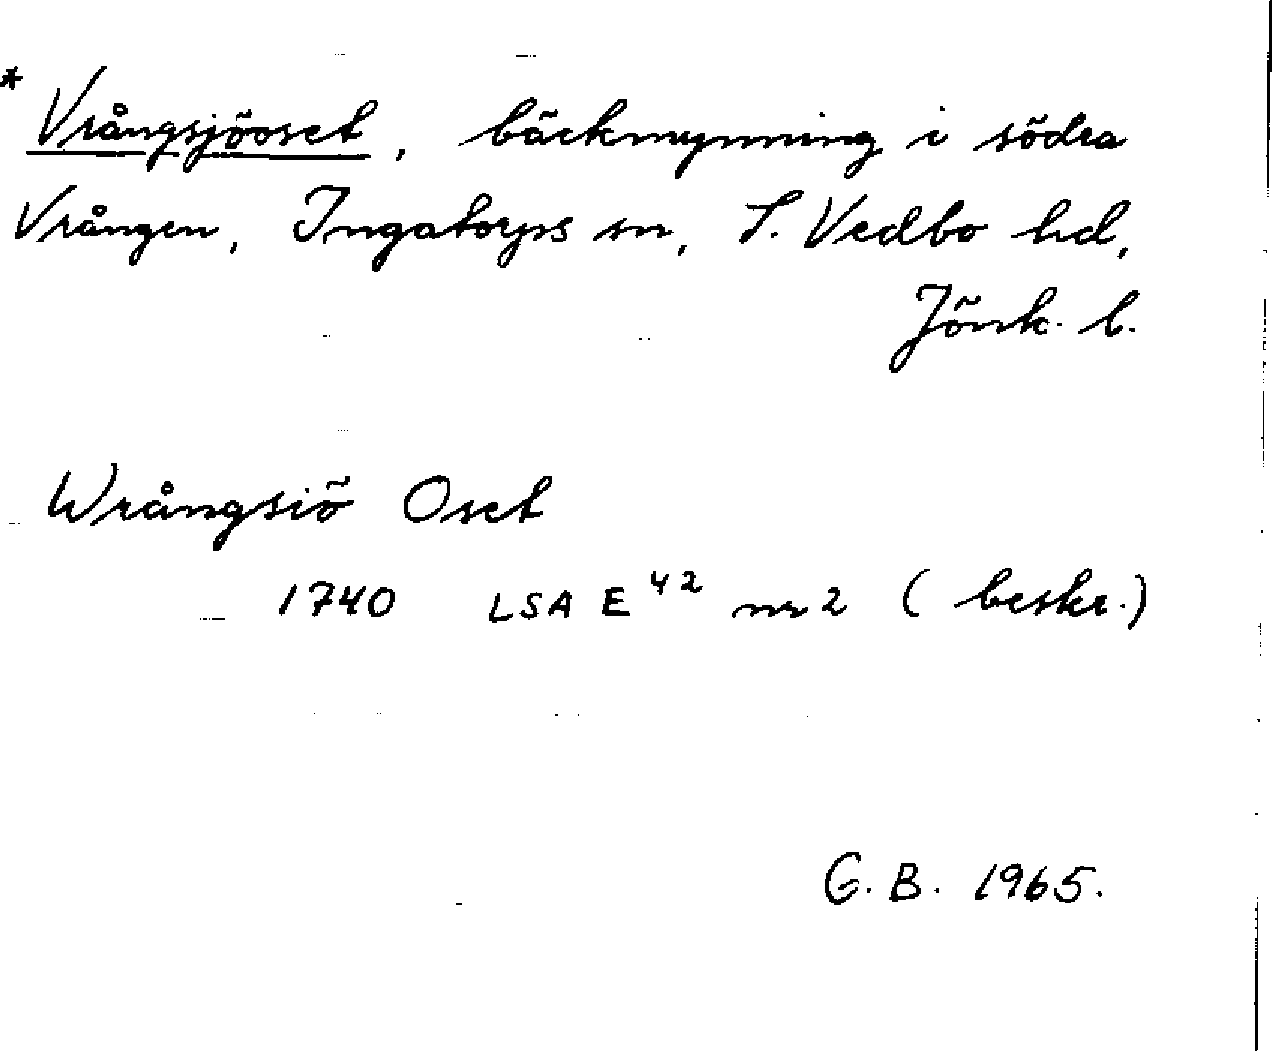 * Vrångsjöoset, bäckmynning i södra
Vrången, Ingatorps sn, S. Vedbo hd,
Jönk. l.
Wrångsiö Oset
1740 LSA E 42 nr 2 (beskr.)
G. B. 1965.